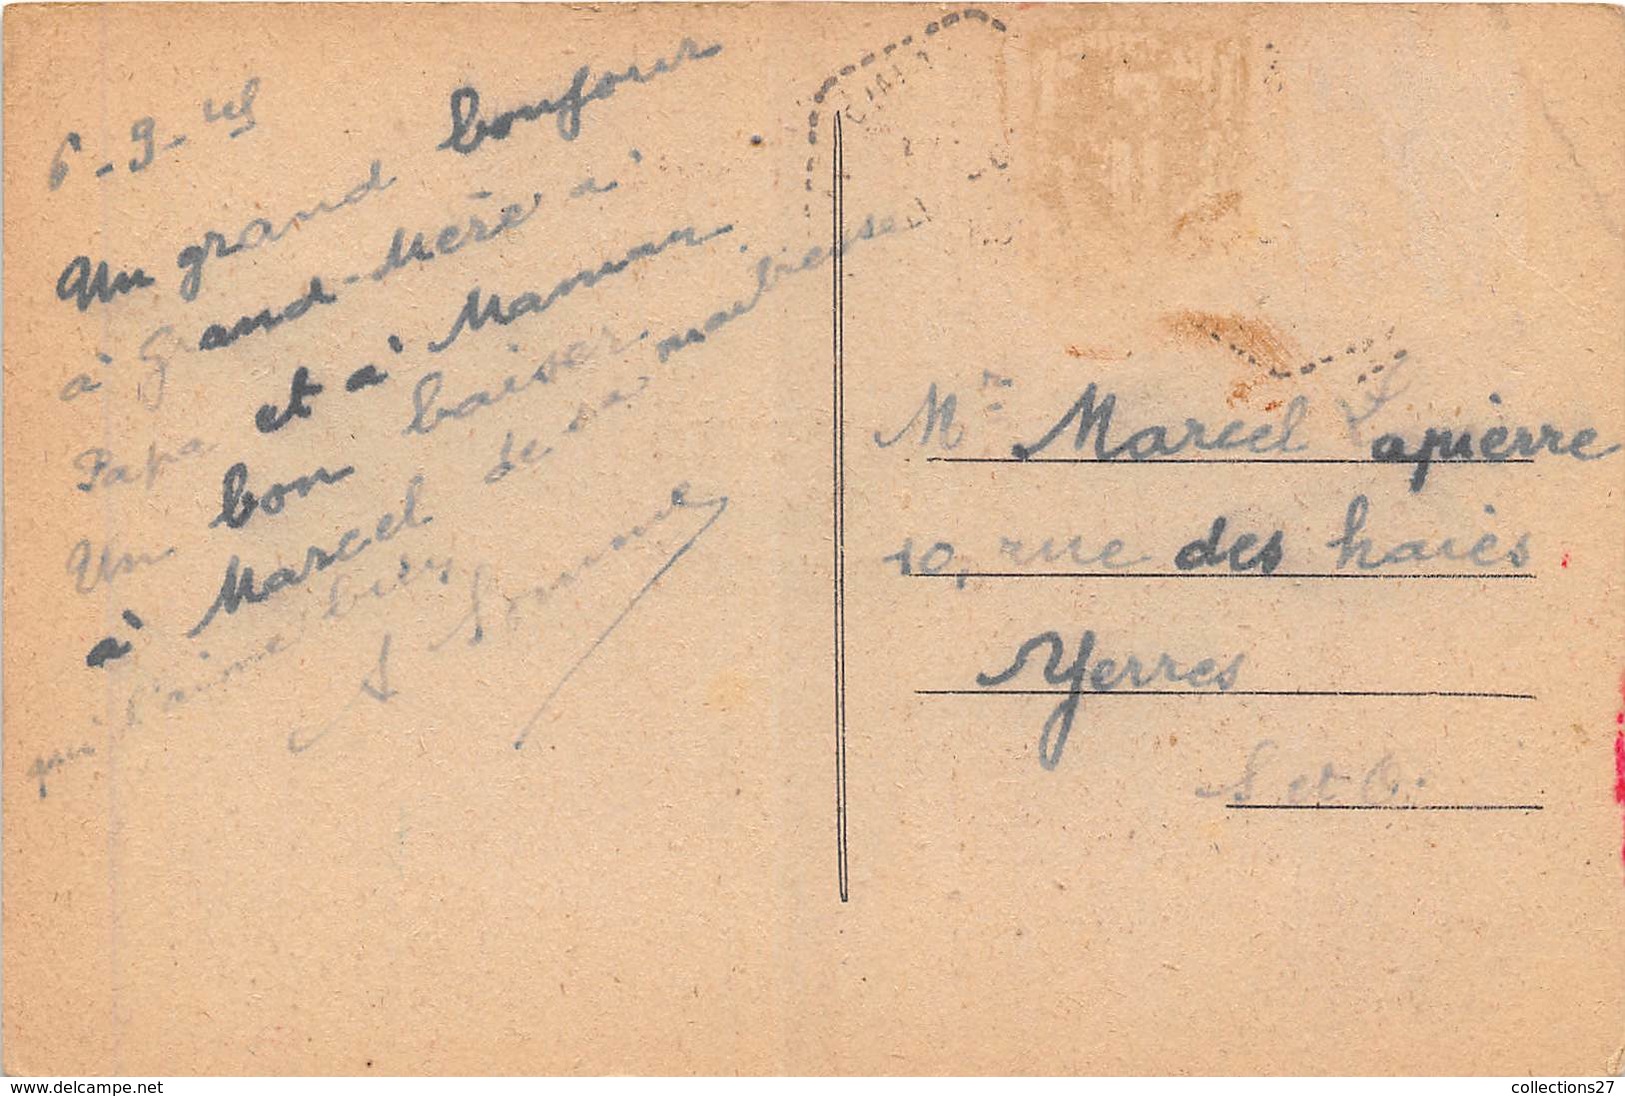 6-9-45
Un grand bonjour
à Grand-Mère à
Papa et à Maman.
Un bon baiser
à Marcel de sa maîtresse
qui l'aime bien
Mr Marcel Lapièrre
10, rue des haies
Yerres
S et O.
www.delcampe.net
collections27